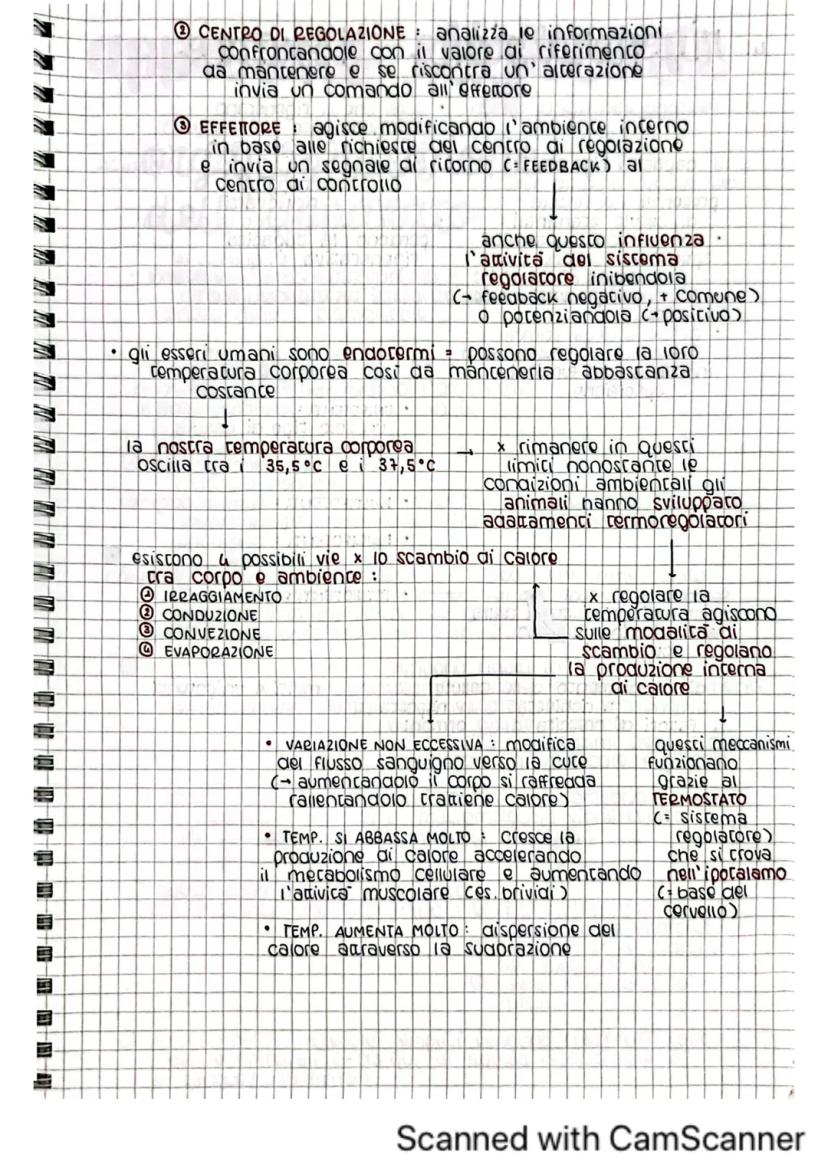 ② CENTRO DI REGOLAZIONE : analizza le informazioni
confrontandole con il valore di riferimento
da mantenere e se riscontra un'alterazione
invia un comando all'effettore
③ EFFETTORE : agisce modificando l'ambiente interno
in base alle richieste del centro di regolazione
e invia un segnale di ritorno (= FEEDBACK) al
centro di controllo
anche questo influenza
l'attività del sistema
regolatore inibendola
(→ feedback negativo, + comune)
o potenziandola (→ positivo)
• gli esseri umani sono endotermi = possono regolare la loro
temperatura corporea così da mantenerla abbastanza
costante
la nostra temperatura corporea
oscilla tra i 35,5°C e i 37,5°C
→ x rimanere in questi
limiti nonostante le
condizioni ambientali gli
animali hanno sviluppato
adattamenti termoregolatori
esistono 4 possibili vie x lo scambio di calore
tra corpo e ambiente :
① IRRAGGIAMENTO
② CONDUZIONE
③ CONVEZIONE
④ EVAPORAZIONE
x regolare la
temperatura agiscono
sulle modalità di
scambio e regolano
la produzione interna
di calore
• VARIAZIONE NON ECCESSIVA : modifica
del flusso sanguigno verso la cute
(→ aumentandolo il corpo si raffredda
rallentandolo trattiene calore)
• TEMP. SI ABBASSA MOLTO : cresce la
produzione di calore accelerando
il metabolismo cellulare e aumentando
l'attività muscolare (es. brividi)
• TEMP. AUMENTA MOLTO : dispersione del
calore attraverso la sudorazione
questi meccanismi
funzionano
grazie al
TERMOSTATO
(= sistema
regolatore)
che si trova
nell'ipotalamo
(= base del
cervello)
Scanned with CamScanner